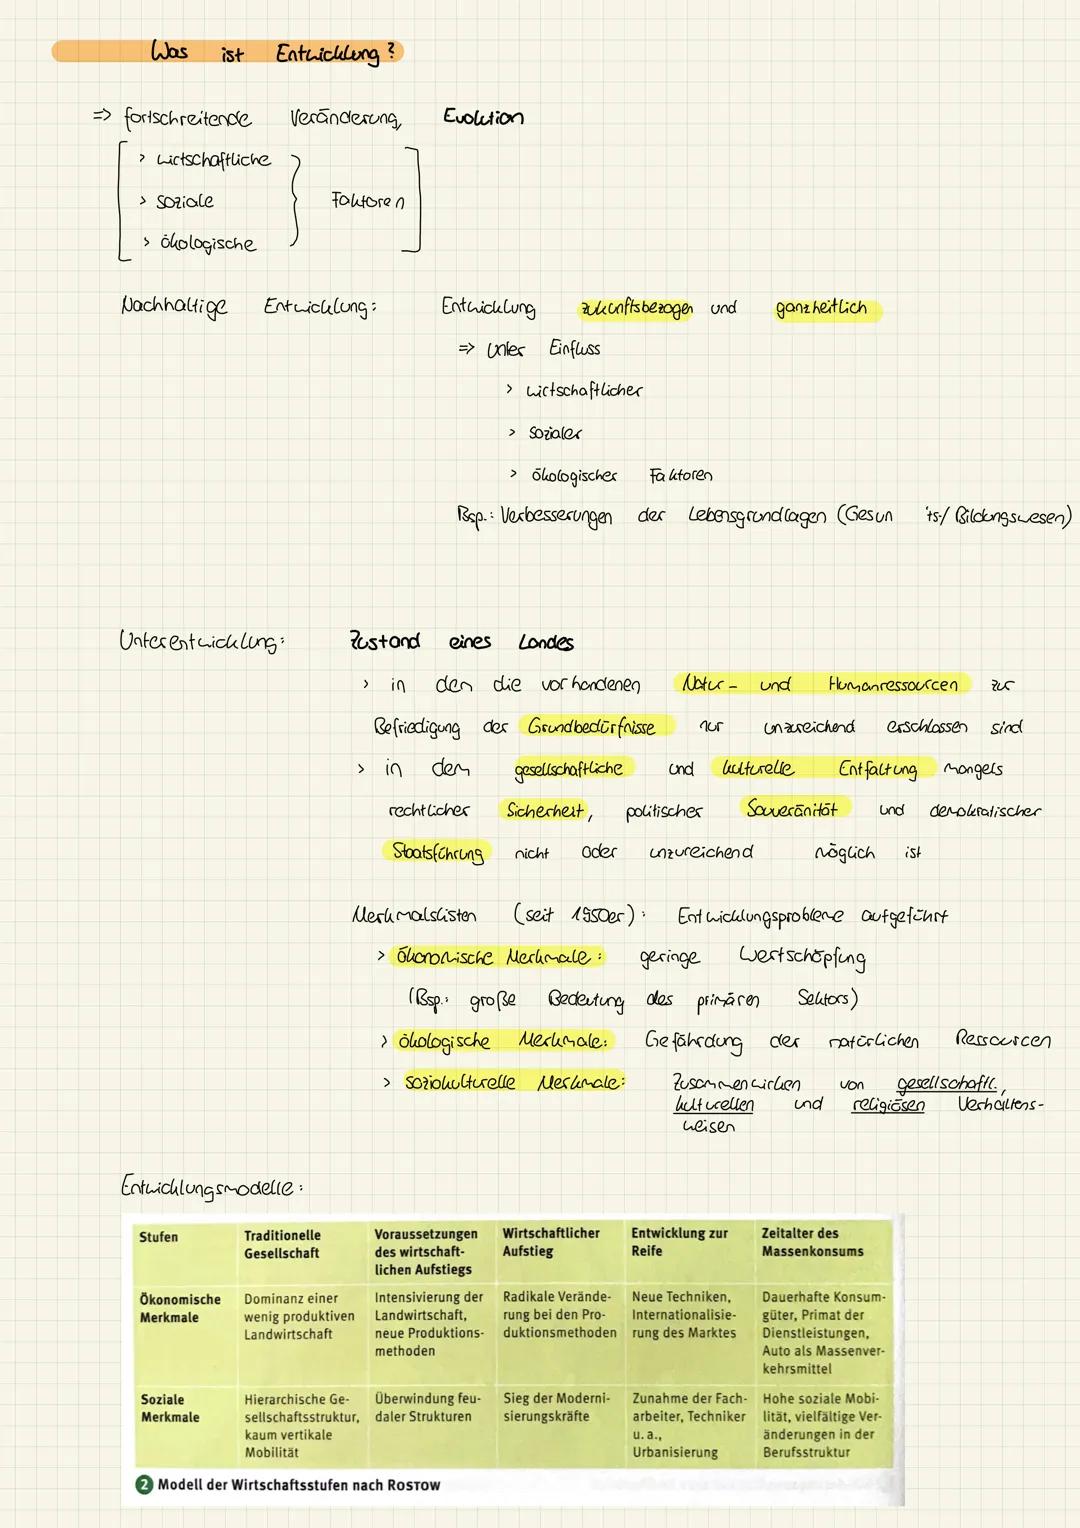 Was ist Entwicklung?
=> fortschreitende Veränderung, Evolution
> wirtschaftliche
> soziale Faktoren
> ökologische
Nachhaltige Entwicklung: Entwicklung zukunftsbezogen und ganzheitlich
=> unter Einfluss
> wirtschaftlicher
> sozialer
> ökologischer Faktoren
Bsp.: Verbesserungen der Lebensgrundlagen (Gesun 'ts-/Bildungswesen)
Unterentwicklung: Zustand eines Landes
> in den die vorhandenen Natur- und Humanressourcen zur
Befriedigung der Grundbedürfnisse nur unzureichend erschlossen sind
> in dem gesellschaftliche und kulturelle Entfaltung mangels
rechtlicher Sicherheit, politischer Souveränität und demokratischer
Staatsführung nicht oder unzureichend möglich ist
Merkmalslisten (seit 1950er): Entwicklungsprobleme aufgeführt
> Ökonomische Merkmale: geringe Wertschöpfung
(Bsp.: große Bedeutung des primären Sektors)
> ökologische Merkmale: Gefährdung der natürlichen Ressourcen
> soziokulturelle Merkmale: Zusammenwirken von gesellschaftl.,
kulturellen und religiösen Verhaltens-
weisen
Entwicklungsmodelle:
Stufen
Traditionelle
Gesellschaft
Voraussetzungen
des wirtschaft-
lichen Aufstiegs
Wirtschaftlicher
Aufstieg
Entwicklung zur
Reife
Zeitalter des
Massenkonsums
Ökonomische
Merkmale
Dominanz einer
wenig produktiven
Landwirtschaft
Intensivierung der
Landwirtschaft,
neue Produktions-
methoden
Radikale Verände-
rung bei den Pro-
duktionsmethoden
Neue Techniken,
Internationalisie-
rung des Marktes
Dauerhafte Konsum-
güter, Primat der
Dienstleistungen,
Auto als Massenver-
kehrsmittel
Soziale
Merkmale
Hierarchische Ge-
sellschaftsstruktur,
kaum vertikale
Mobilität
Überwindung feu-
daler Strukturen
Sieg der Moderni-
sierungskräfte
Zunahme der Fach-
arbeiter, Techniker
u. a.,
Urbanisierung
Hohe soziale Mobi-
lität, vielfältige Ver-
änderungen in der
Berufsstruktur
2 Modell der Wirtschaftsstufen nach ROSTOW